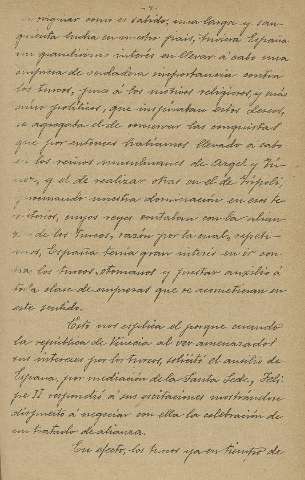 - 4 -
como es sabido, una larga y san-
grienta lucha en nuestro pais, tuviera España
un grandisimo interés en llevar á cabo una
empresa de verdadera importancia contra
los turcos, pues á los motivos religiosos, y más
aún politicos, que inspiraban estos deseos,
se agregaba el de conservar las conquistas
que por entonces habiamos llevado á cabo
en los reinos musulmanes de Argel y Tú-
nez, y el de realizar otras en el de Tripoli,
nuestra dominacion en esos te-
rritorios, cuyos reyes contaban con la alian-
za de los turcos, razón por la cual, repeti-
mos, España tenia gran interés en ir con-
tra los turcos otomanos y prestar auxilio á
toda clase de empresas que se acometieran en
este sentido.
Esto nos esplica el porque cuando
la república de Venecia al ver amenazados
sus intereses por los turcos, solicitó el auxilio de
España, por mediación de la Santa Sede, Feli-
pe II respondió á sus escitaciones mostrándose
dispuesto á negociar con ella la celebración de
un tratado de alianza.
En efecto, los turcos ya en tiempo de